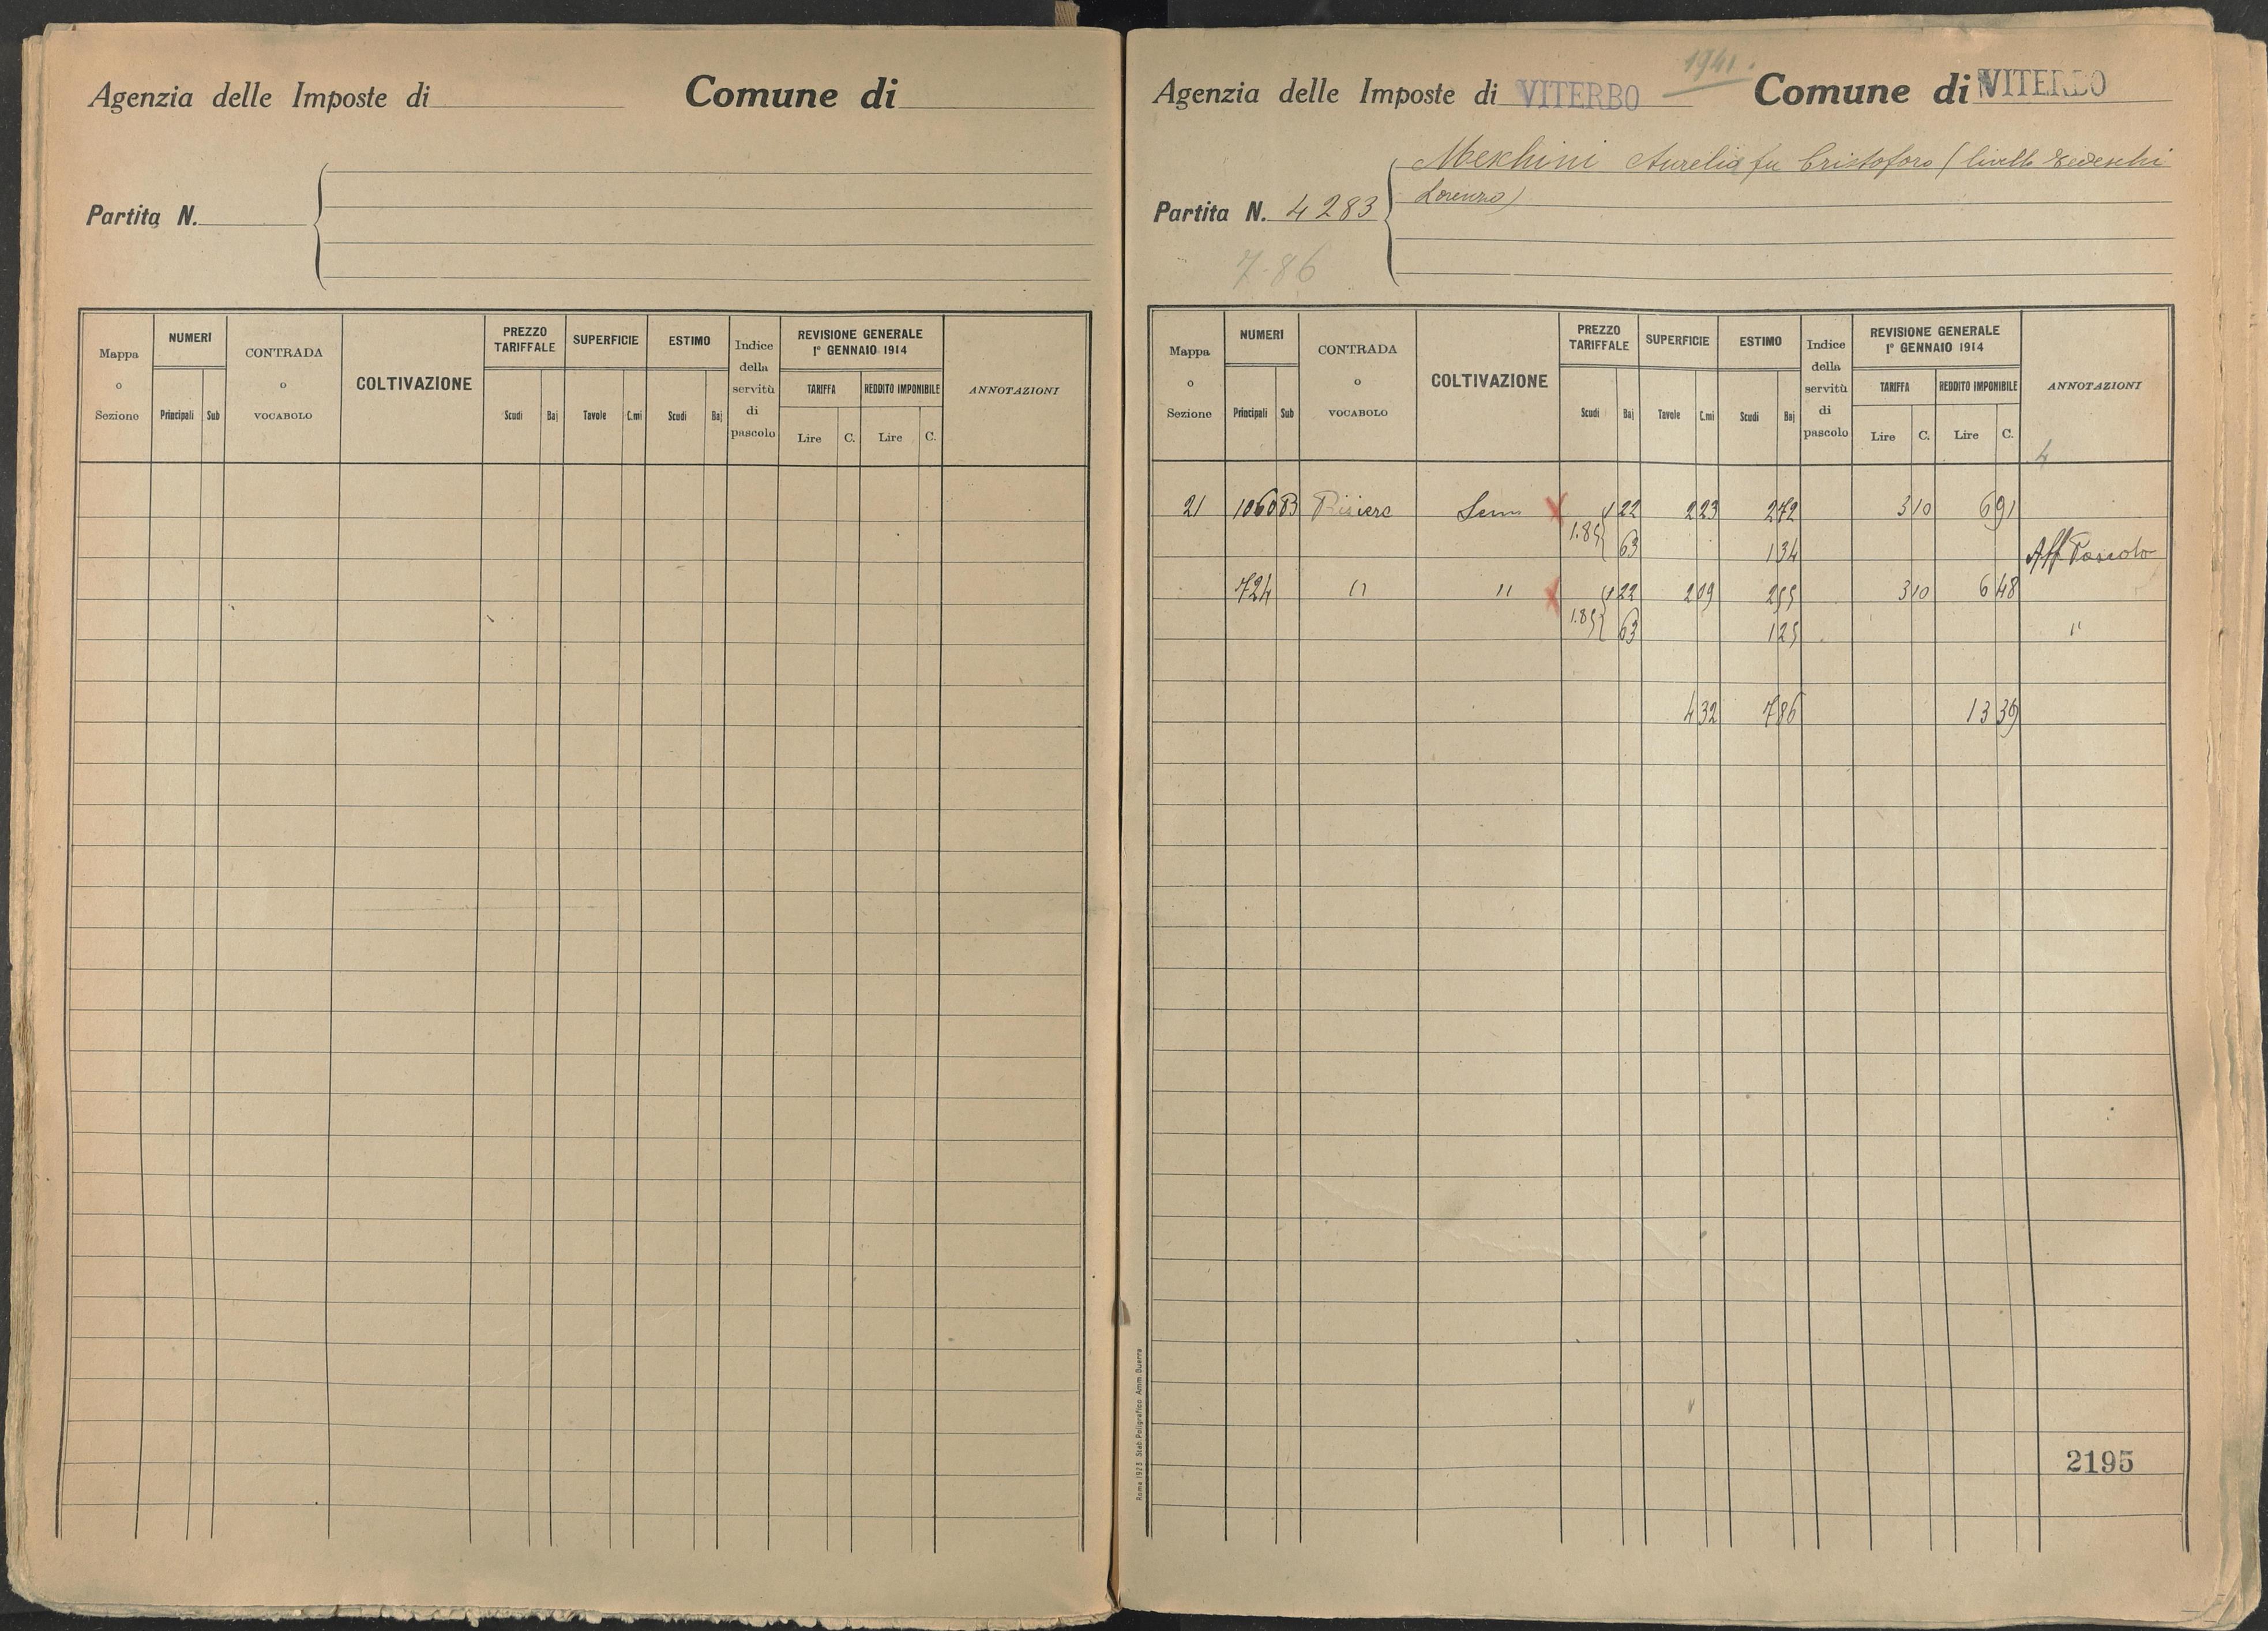 Agenzia delle Imposte di Comune di
Partita N.
Mappa o Sezione NUMERI CONTRADA o VOCABOLO COLTIVAZIONE PREZZO TARIFFALE SUPERFICIE ESTIMO Indice della servitù di pascolo REVISIONE GENERALE 1° GENNAIO 1914 ANNOTAZIONI
TARIFFA REDDITO IMPONIBILE
Principali Sub Scudi Baj Tavole C.mi Scudi Baj Lire C. Lire C.
1941.
Agenzia delle Imposte di VITERBO Comune di VITERBO
Meschini Aurelia fu Cristoforo (livello Tedeschi
Lorenzo)
Partita N. 4283
7.86
Mappa o Sezione NUMERI CONTRADA o VOCABOLO COLTIVAZIONE PREZZO TARIFFALE SUPERFICIE ESTIMO Indice della servitù di pascolo REVISIONE GENERALE 1° GENNAIO 1914 ANNOTAZIONI
TARIFFA REDDITO IMPONIBILE
Principali Sub Scudi Baj Tavole C.mi Scudi Baj Lire C. Lire C.
4
21 1060 B Risiere Sem X 1 22 2 23 2 72 3 10 6 91
1.85 63 1 34 Aff Pascolo
724 " " X 1 22 2 09 2 55 3 10 6 48
1.85 63 1 25 "
4 32 7 86 13 39
2195
Roma 1923 Stab. Poligrafico Amm. Guerra